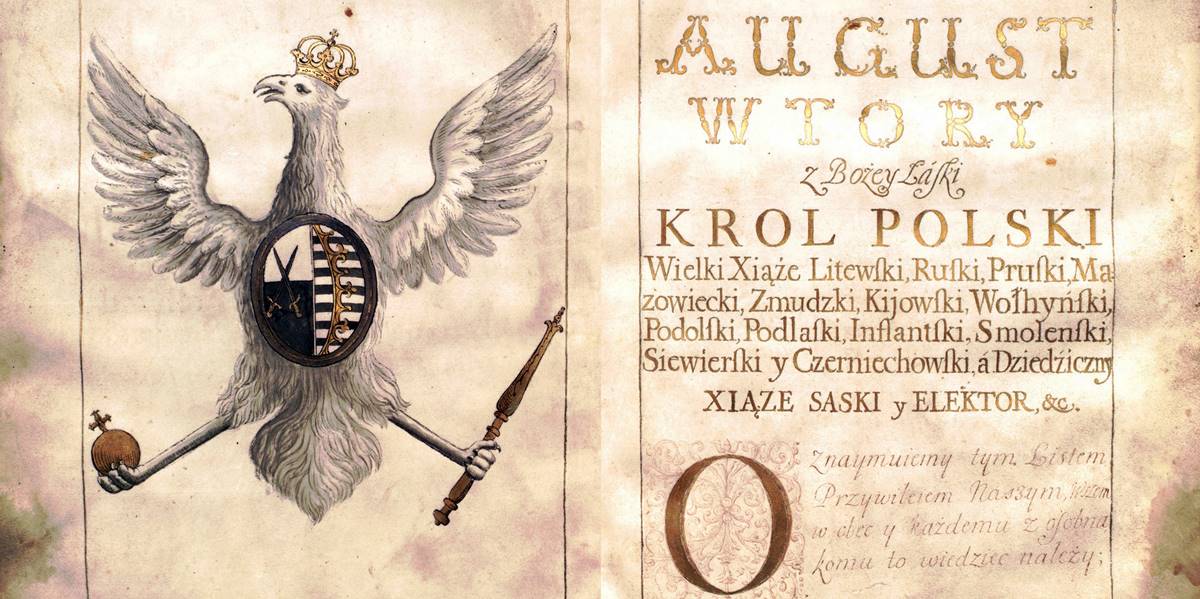 AUGUST
WTORY
z Bożey Łáſki
KROL POLSKI
Wielki Xiąże Litewſki, Ruſki, Pruſki, Ma-
zowiecki, Zmudzki, Kijowſki, Wołhyńſki,
Podolſki, Podlaſki, Inflantſki, Smolenſki,
Siewierſki y Czerniechowſki, á Dziedźiczny
XIĄZE SASKI y ELEKTOR, &c.
OZnaymuiemy tym Listem
Przywileiem Naszym, Wszem
w obec y każdemu z oſobna
komu to wiedziec należy;